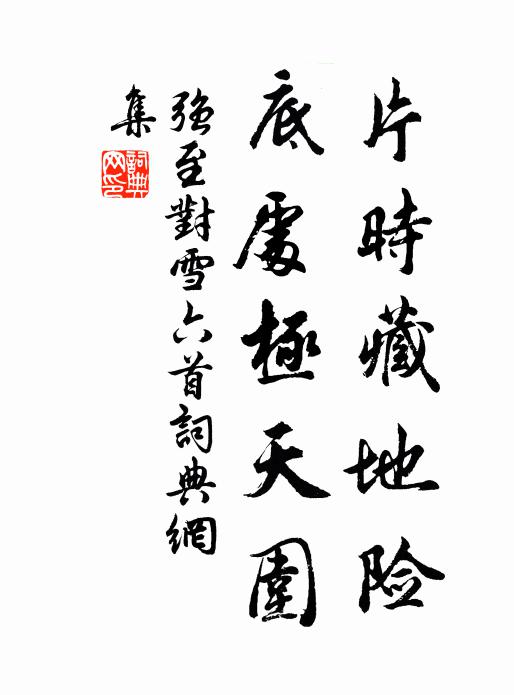 片時藏地險
底處極天圍
強至對雪六首詞典網
集
詞典
网印